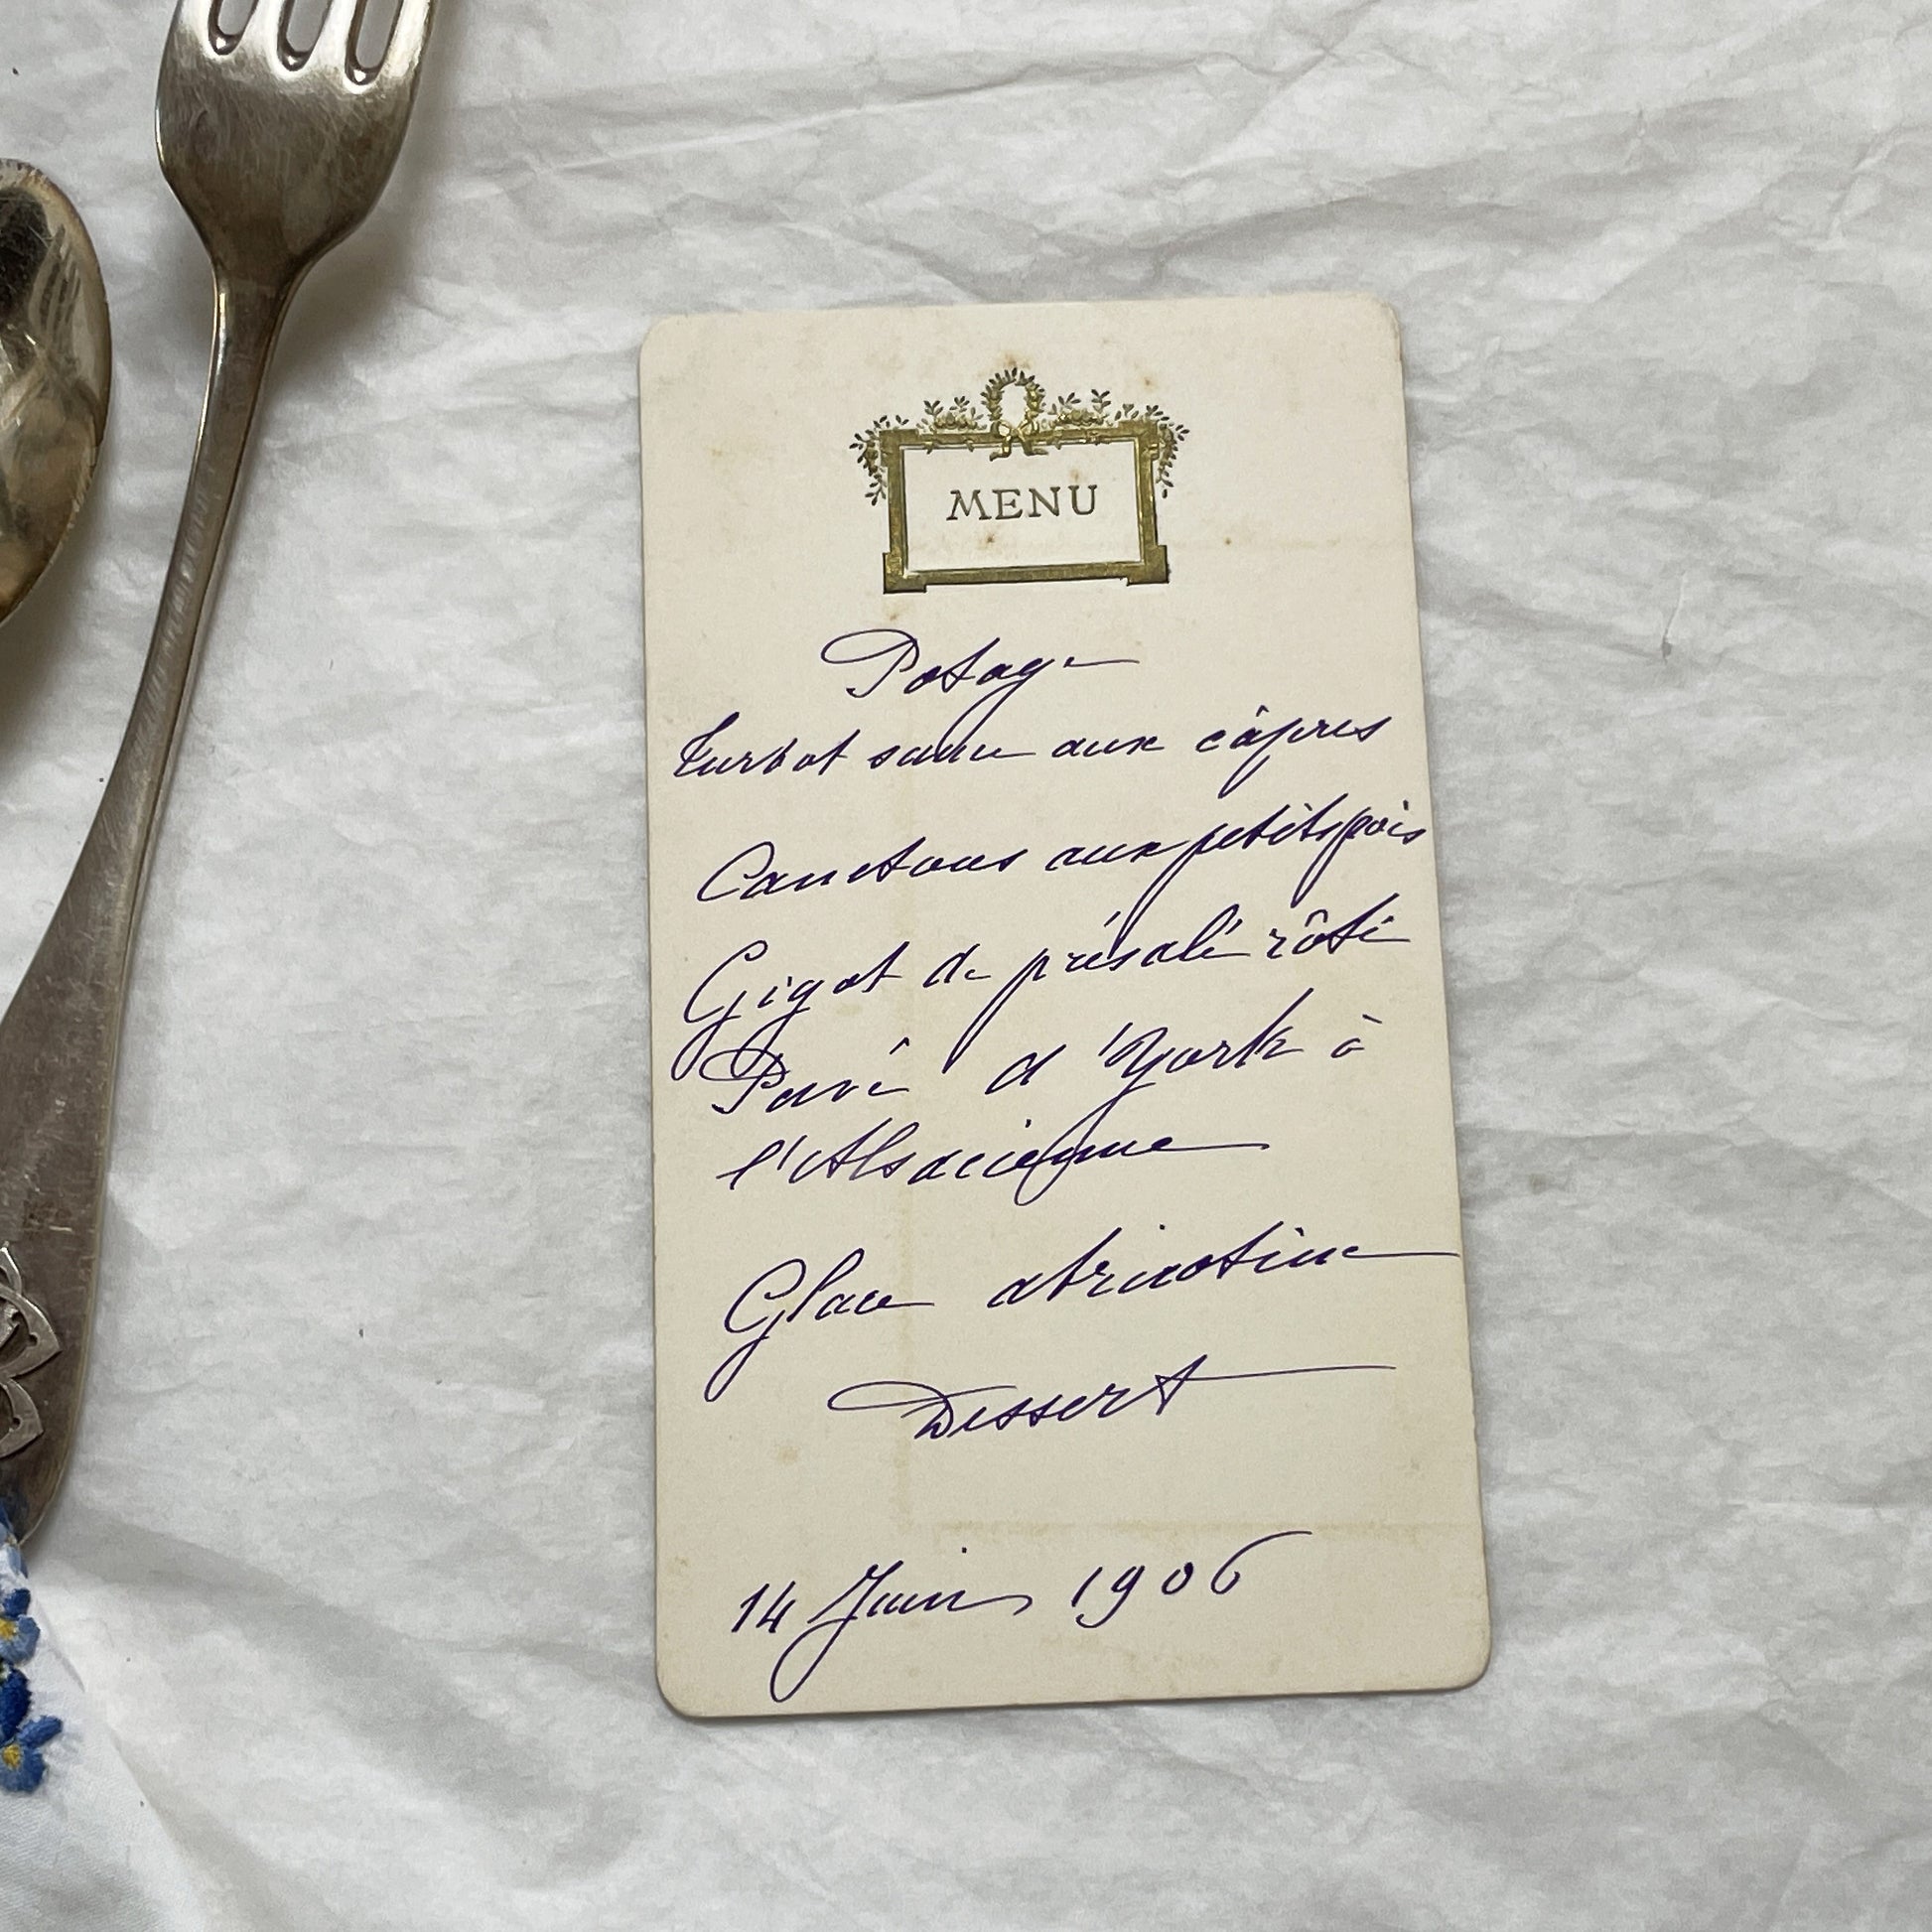 MENU
Potage
Turbot sauce aux câpres
Canetons aux petits pois
Gigot de présalé rôti
Pavé d'York à
l'Alsacienne
Glace abricotine
Dessert
14 Juin 1906